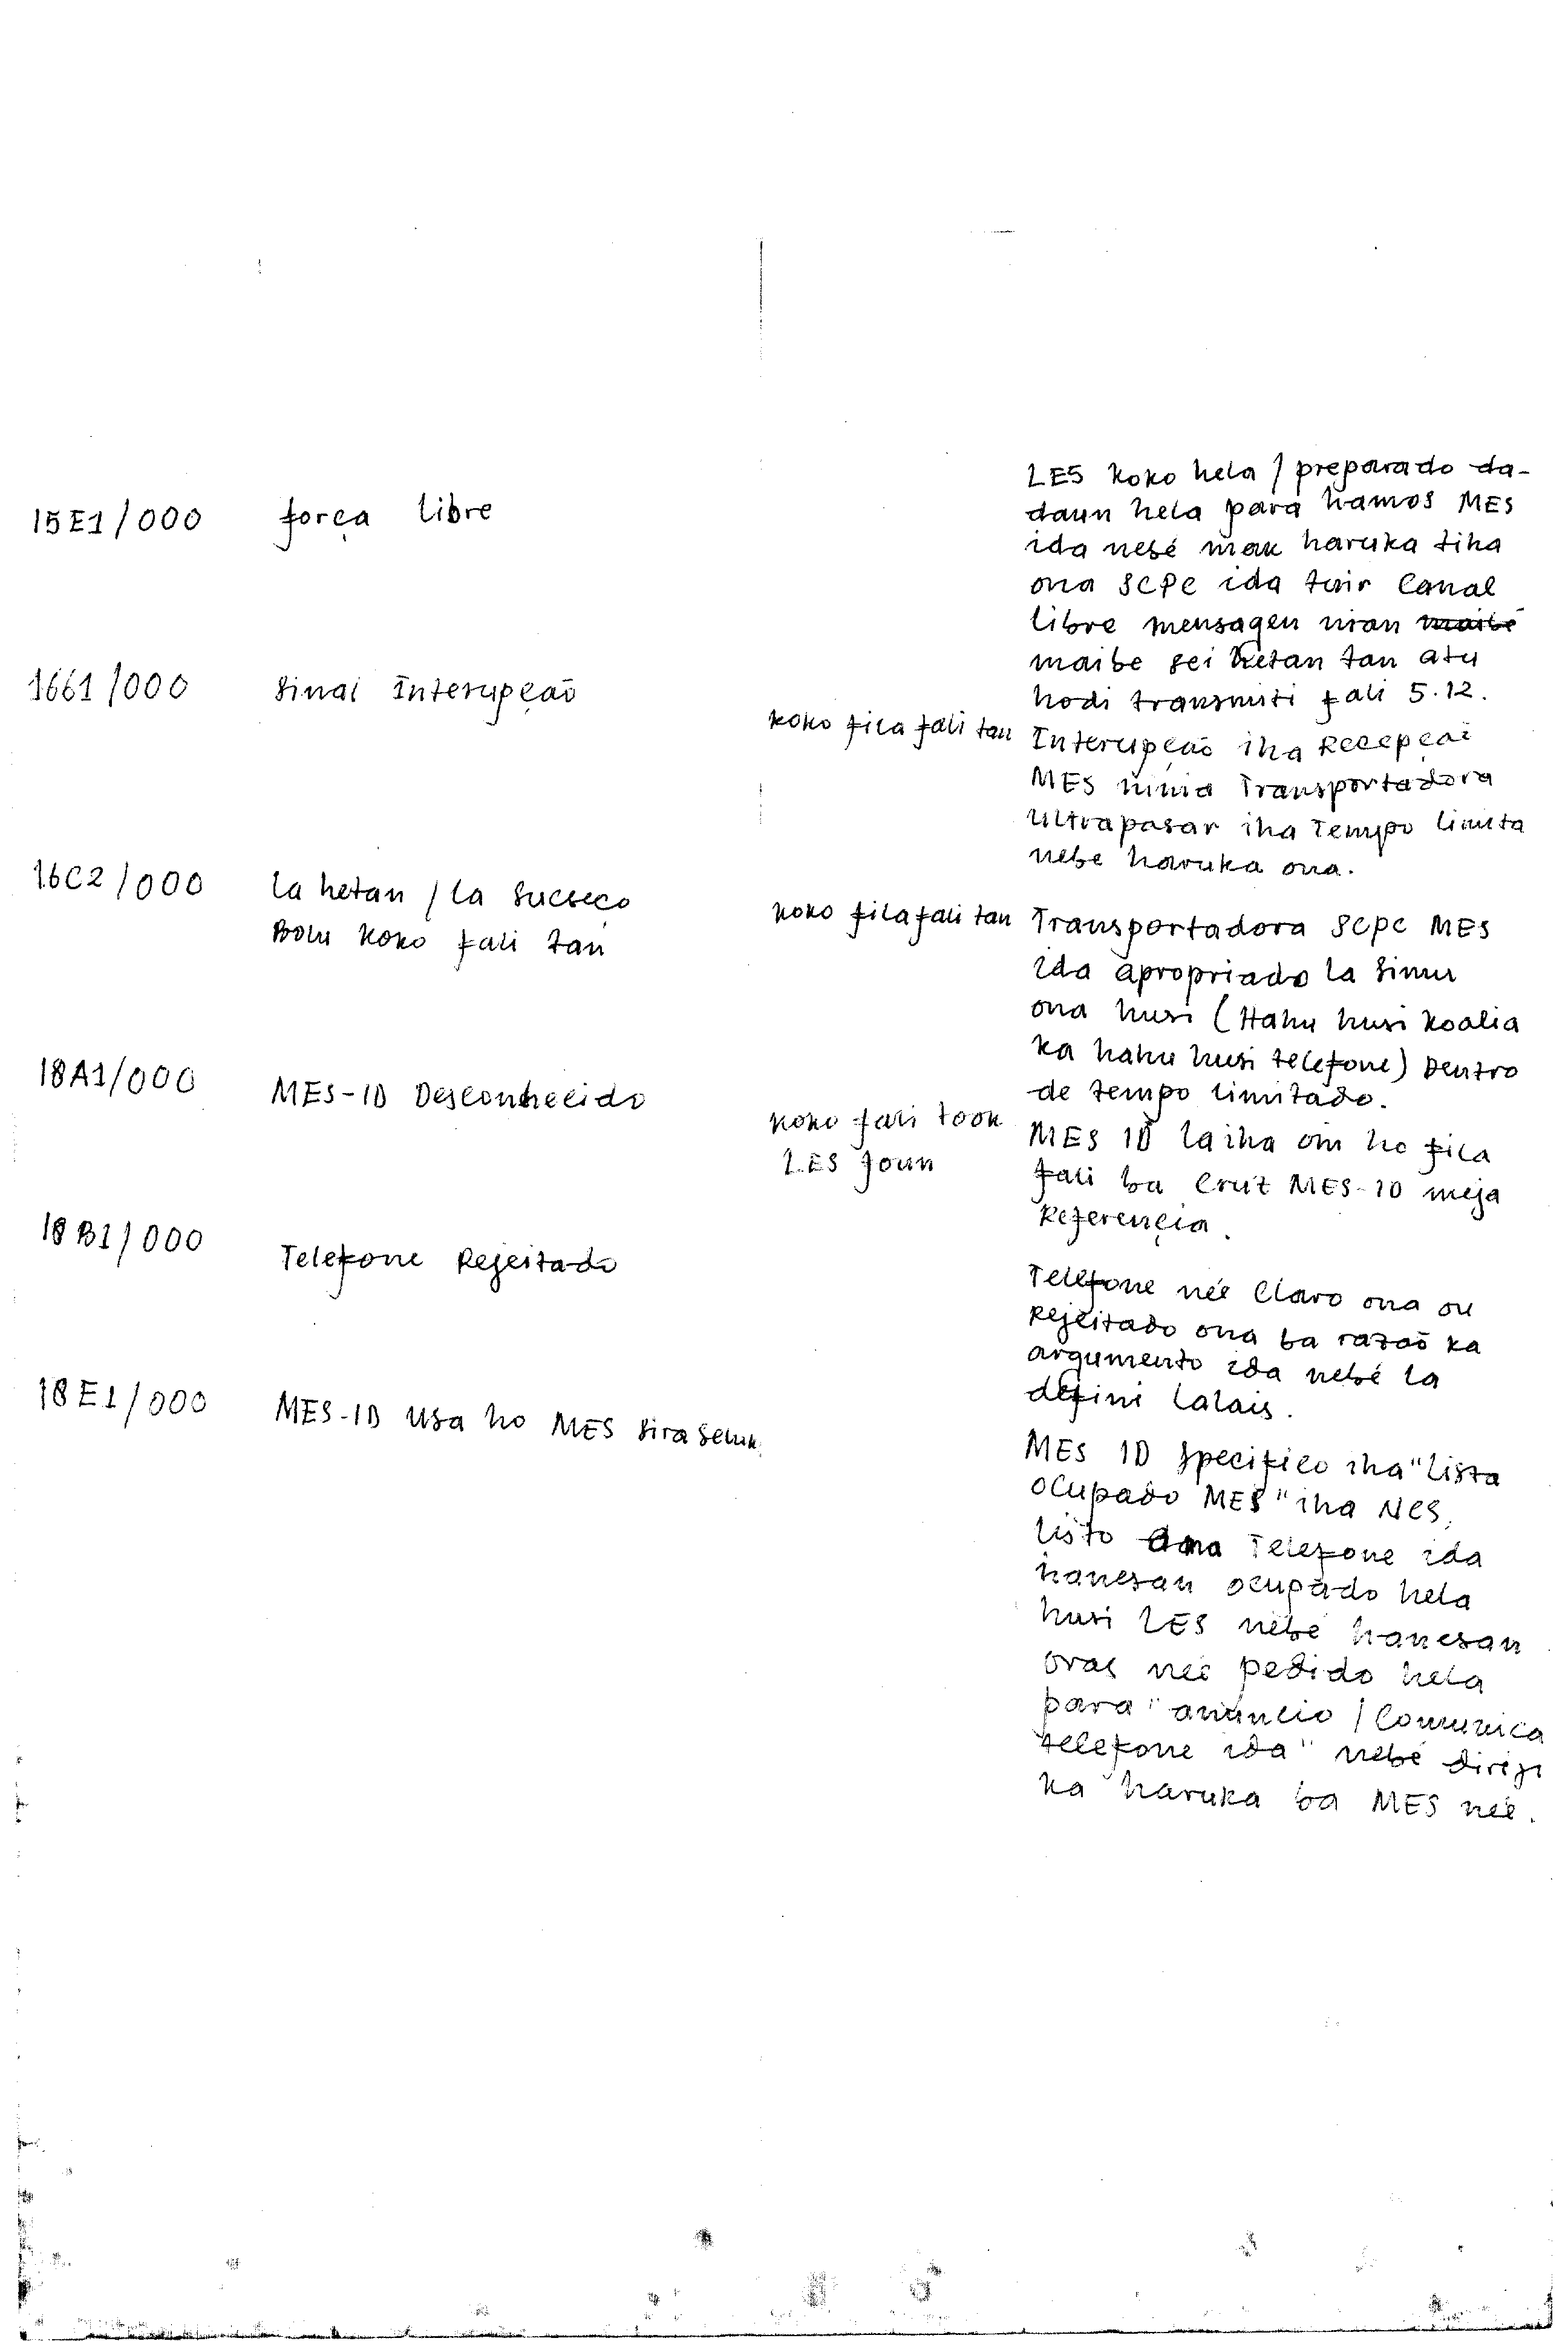 15E1/000 força libre
LES koko hela / preparado da-
daun hela para hamos MES
ida nebé mak haruka tiha
ona SCPC ida tuir Canal
libre mensagen nian maibé
maibe sei hetan tan atu
hodi transmiti fali 5.12.
1661/000 Sinal Interupçaõ
koko fila fali tan
Interupçaõ iha Recepçaõ
MES ninia Transportadora
ultrapasar iha Tempo limita
nebe haruka ona.
16C2/000 la hetan / la sucseço
Bolu koko fali tan
koko fila fali tan
Transportadora SCPC MES
ida apropriado la simu
ona husi (Hahu husi koalia
ka hahu husi telefone) Dentro
de tempo limitado.
18A1/000 MES-ID Desconhecido
koko fali took
LES foun
MES ID laiha oin ho fila
fali ba Cruz MES-ID meja
Referençia.
18B1/000 Telefone Rejeitado
Telefone neé Claro ona ou
Rejeitado ona ba razaõ ka
argumento ida nebé la
defini lalais.
18E1/000 MES-ID Usa ho MES sira seluk
MES ID specifico iha "Lista
ocupado MES" iha NCS,
listo Telefone ida
hanesan ocupado hela
husi LES nebé hanesan
oras neé pedido hela
para "anúncio / Comunica
telefone ida" nebé diriji
ka haruka ba MES neé.